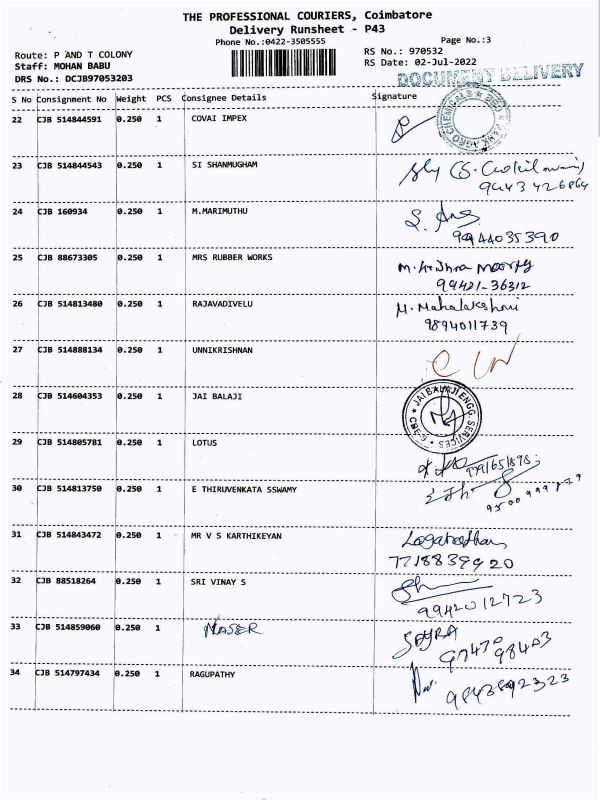 THE PROFESSIONAL COURIERS, Coimbatore
Delivery Runsheet - P43
Phone No.:0422-3505555
Page No.:3
Route: P AND T COLONY
RS No.: 970532
Staff: MOHAN BABU
RS Date: 02-Jul-2022
DRS No.: DCJB97053203
DOCUMENT DELIVERY
S No Consignment No Weight PCS Consignee Details Signature
22 CJB 514844591 0.250 1 COVAI IMPEX
23 CJB 514844543 0.250 1 SI SHANMUGHAM
9443426864
24 CJB 160934 0.250 1 M.MARIMUTHU
9944035390
25 CJB 88673305 0.250 1 MRS RUBBER WORKS
M. Krishna Moorthy
99421-36312
26 CJB 514813480 0.250 1 RAJAVADIVELU
M. Mahalakshmi
9894011739
27 CJB 514888134 0.250 1 UNNIKRISHNAN
28 CJB 514604353 0.250 1 JAI BALAJI
JAI BALAJI ENGG. SERVICES
29 CJB 514805781 0.250 1 LOTUS
30 CJB 514813750 0.250 1 E THIRUVENKATA SSWAMY
31 CJB 514843472 0.250 1 MR V S KARTHIKEYAN
Loganathan
7718839920
32 CJB 88518264 0.250 1 SRI VINAY S
9942012723
33 CJB 514859060 0.250 1 NASER
97470 98403
34 CJB 514797434 0.250 1 RAGUPATHY
9843892323